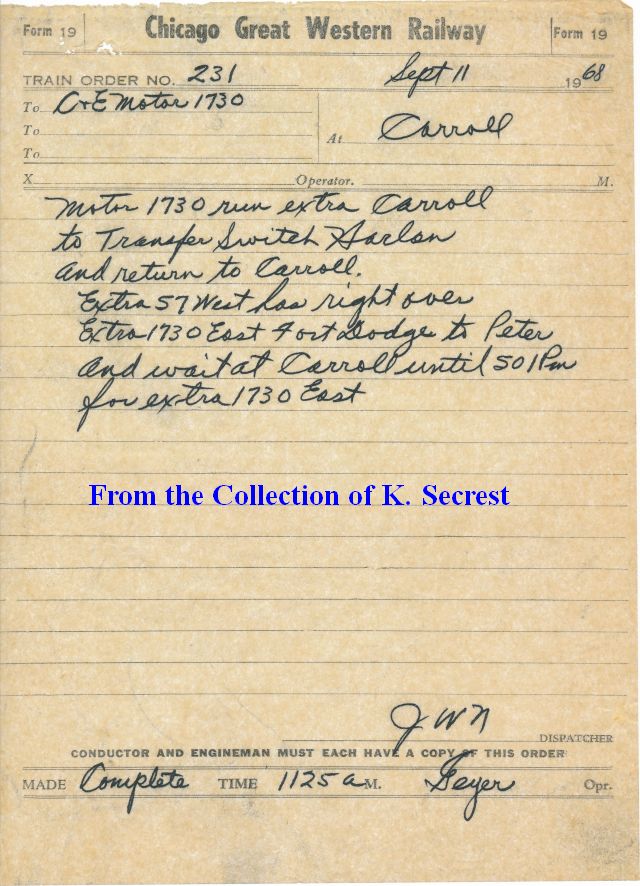 Form 19 Chicago Great Western Railway Form 19
TRAIN ORDER NO. 231 Sept 11 1968
To C+E Motor 1730
To
At Carroll
To
X Operator. M.
Motor 1730 run extra Carroll
to Transfer Switch Harlan
and return to Carroll.
Extra 57 West has right over
Extra 1730 East Fort Dodge to Peter
and wait at Carroll until 501Pm
for extra 1730 East
From the Collection of K. Secrest
JWN
DISPATCHER
CONDUCTOR AND ENGINEMAN MUST EACH HAVE A COPY OF THIS ORDER
MADE Complete TIME 1125 a M. Geyer Opr.